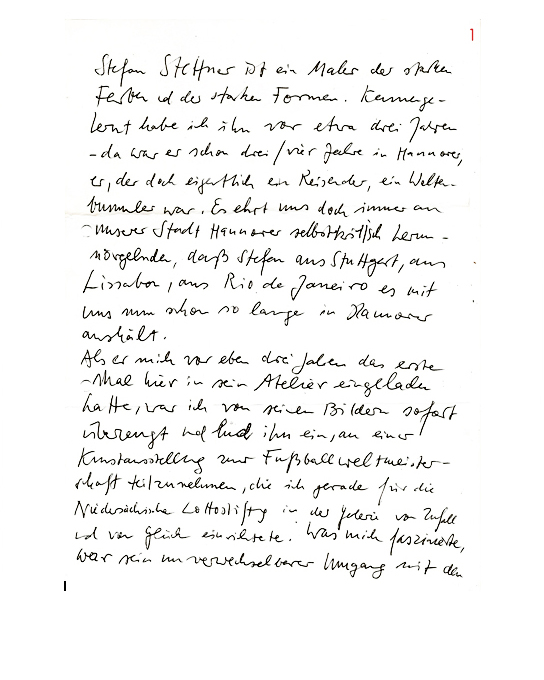 1
Stefan Stettner ist ein Maler der starken
Farben und der starken Formen. Kennenge-
lernt habe ich ihn vor etwa drei Jahren
- da war er schon drei/vier Jahre in Hannover,
er, der doch eigentlich ein Reisender, ein Welten-
bummler war. Es ehrt uns doch immer an
unserer Stadt Hannover selbstkritisch herum-
nörgelnden, daß Stefan aus Stuttgart, aus
Lissabon, aus Rio de Janeiro es mit
uns nun schon so lange in Hannover
aushält.
Als er mich vor eben drei Jahren das erste
Mal hier in sein Atelier eingeladen
hatte, war ich von seinen Bildern sofort
überzeugt und lud ihn ein, an einer
Kunstausstellung zur Fußballweltmeister-
schaft teilzunehmen, die ich gerade für die
Niedersächsische Lottostiftung in der Galerie von Zufall
und von Glück einrichtete. Was mich faszinierte,
war sein unverwechselbarer Umgang mit den